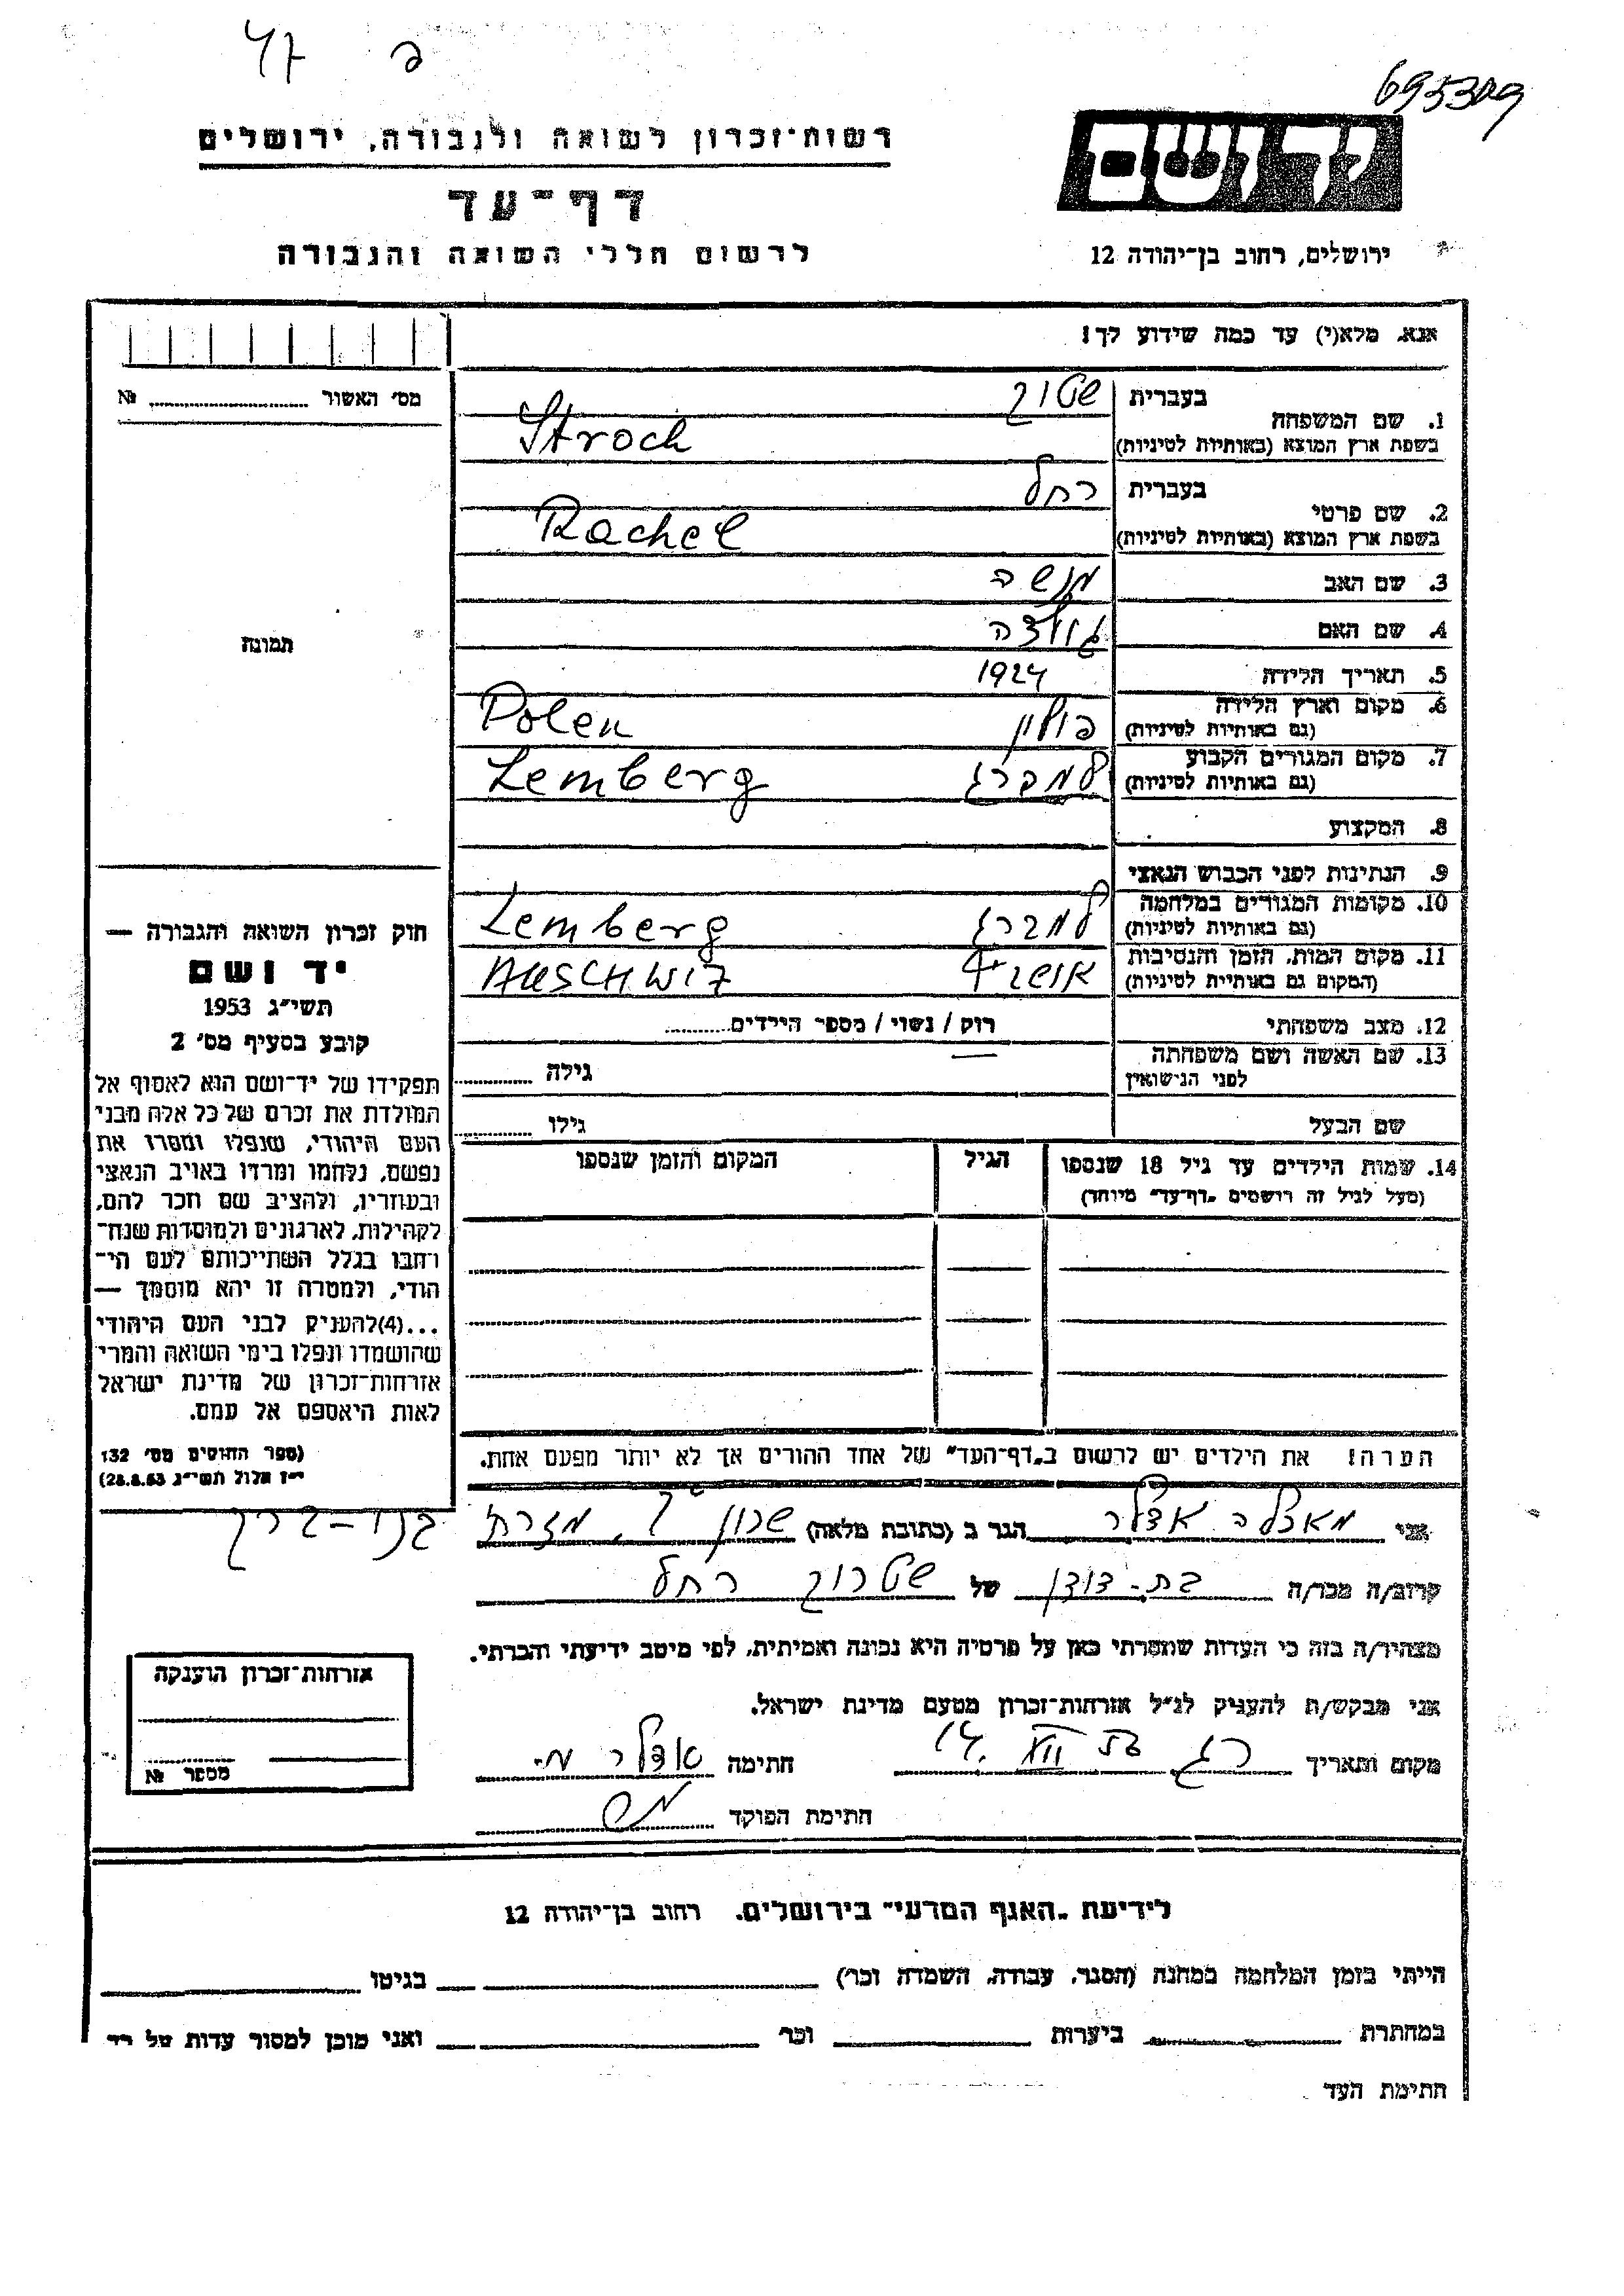 47 פ
695309
רשות-זכרון לשואה ולגבורה, ירושלים
יד ושם
דף-עד
לרשום חללי השואה והגבורה
ירושלים, רחוב בן-יהודה 12
אנא, מלא(י) עד כמה שידוע לך!
מס׳ האשור № ........
1. שם המשפחה
בעברית שטוך
בשפת ארץ המוצא (באותיות לטיניות) Stroch
2. שם פרטי
בעברית רחל
בשפת ארץ המוצא (באותיות לטיניות) Rachel
3. שם האב מנשה
4. שם האם
5. תאריך הלידה 1924
6. מקום וארץ הלידה
(גם באותיות לטיניות) פולין Polen
7. מקום המגורים הקבוע
(גם באותיות לטיניות) למברג Lemberg
8. המקצוע
9. הנתינות לפני הכבוש הנאצי
10. מקומות המגורים במלחמה
(גם באותיות לטיניות) למברג Lemberg
11. מקום המות, הזמן והנסיבות
(המקום גם באותיות לטיניות) AUSCHWITZ
12. מצב משפחתי רוק / נשוי / מספר הילדים........
13. שם האשה ושם משפחתה
לפני הנישואין גילה ........
שם הבעל גילו ........
14. שמות הילדים עד גיל 18 שנספו
(מעל לגיל זה רושמים „דף-עד״ מיוחד)
הגיל
המקום והזמן שנספו
תמונה
חוק זכרון השואה והגבורה —
יד ושם
תשי״ג 1953
קובע בסעיף מס׳ 2
תפקידו של יד-ושם הוא לאסוף אל
המולדת את זכרם של כל אלה מבני
העם היהודי, שנפלו ומסרו את
נפשם, נלחמו ומרדו באויב הנאצי
ובעוזריו, ולהציב שם וזכר להם,
לקהילות, לארגונים ולמוסדות שנח-
רבו בגלל השתייכותם לעם הי-
הודי, ולמטרה זו יהא מוסמך —
...(4)להעניק לבני העם היהודי
שהושמדו ונפלו בימי השואה והמרי
אזרחות-זכרון של מדינת ישראל
לאות היאספם אל עמם.
(ספר החוקים מס׳ 132
י״ז אלול תשי״ג 28.8.53)
הערה! את הילדים יש לרשום ב„דף-העד״ של אחד ההורים אך לא יותר מפעם אחת.
אני אדלר הגר ב (כתובת מלאה) שרון בני-ברק
קרוב/ה מכר/ה בת-דודן של שטרוך רחל
מצהיר/ה בזה כי העדות שמסרתי כאן על פרטיה היא נכונה ואמיתית, לפי מיטב ידיעתי והכרתי.
אני מבקש/ת להעניק לנ״ל אזרחות-זכרון מטעם מדינת ישראל.
מקום ותאריך רג חתימה אדלר מ.
חתימת הפוקד
אזרחות-זכרון הוענקה
מספר №
לידיעת „האגף המדעי״ בירושלים. רחוב בן-יהודה 12
הייתי בזמן המלחמה במחנה (הסגר, עבודה, השמדה וכו׳) בגיטו
במחתרת ביערות וכו׳ ואני מוכן למסור עדות על כך
חתימת העד